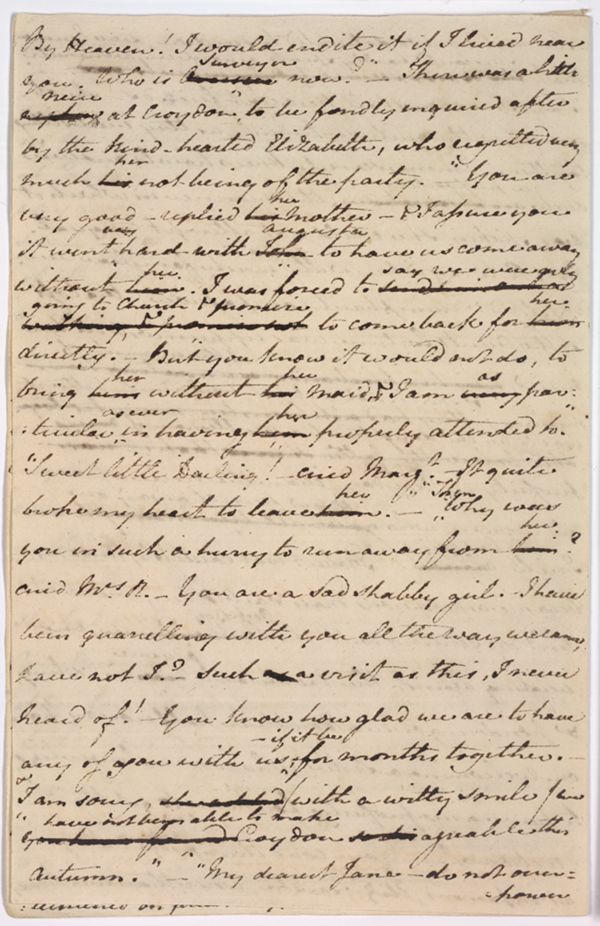 By Heaven! I would endite it if I lived near
you. Who is Surveyor now?" — There was a little
neice at Croydon, to be fondly enquired after
by the kind-hearted Elizabeth, who regretted very
much his her not being of the party. — "You are
very good — replied his her Mother — & I assure you
it went very hard with John Augusta to have us come away
without him her. I was forced to say we were only
going to Church & promise to come back for him her
directly. — But you know it would not do, to
bring him her without his her maid, & I am as par:
:ticular as ever in having him her properly attended to."
"Sweet little Darling! — cried Margt — It quite
broke my heart to leave him her. —" "Then why was
you in such a hurry to run away from him her?
cried Mrs R. — You are a sad shabby girl. — I have
been quarrelling with you all the way we came,
have not I? — Such a visit as this, I never
heard of! — You know how glad we are to have
any of you with us — if it be for months together. —
& I am sorry, she added (with a witty smile) we
have not been able to make Croydon agreable this
Autumn." — "My dearest Jane — do not over=
=power